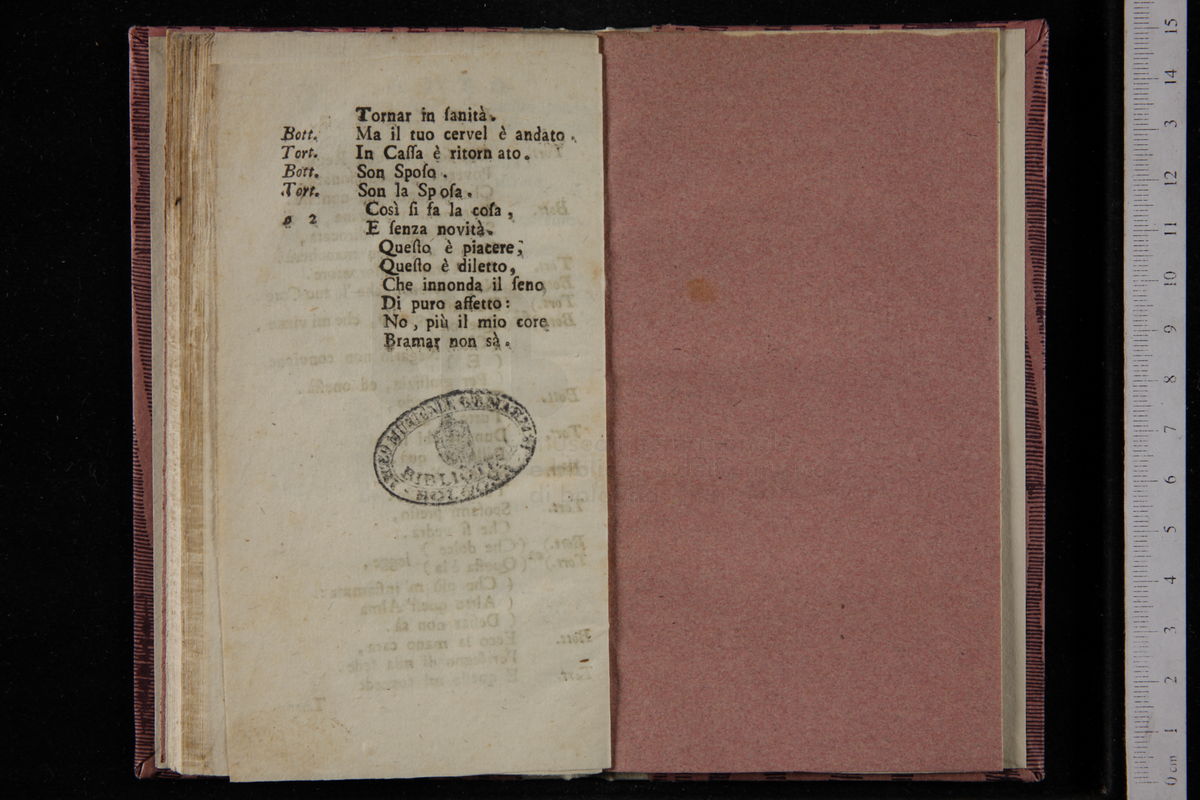 Tornar in ſanità.
Bott. Ma il tuo cervel è andato.
Tort. In Caſſa è ritornato.
Bott. Son Spoſo.
Tort. Son la Spoſa.
a 2 Così ſi fa la coſa,
E ſenza novità.
Queſto è piacere,
Queſto è diletto,
Che innonda il ſeno
Di puro affetto:
No, più il mio core
Bramar non sà.
BIBLIOTECA
0 cm 1 2 3 4 5 6 7 8 9 10 11 12 3 14 15